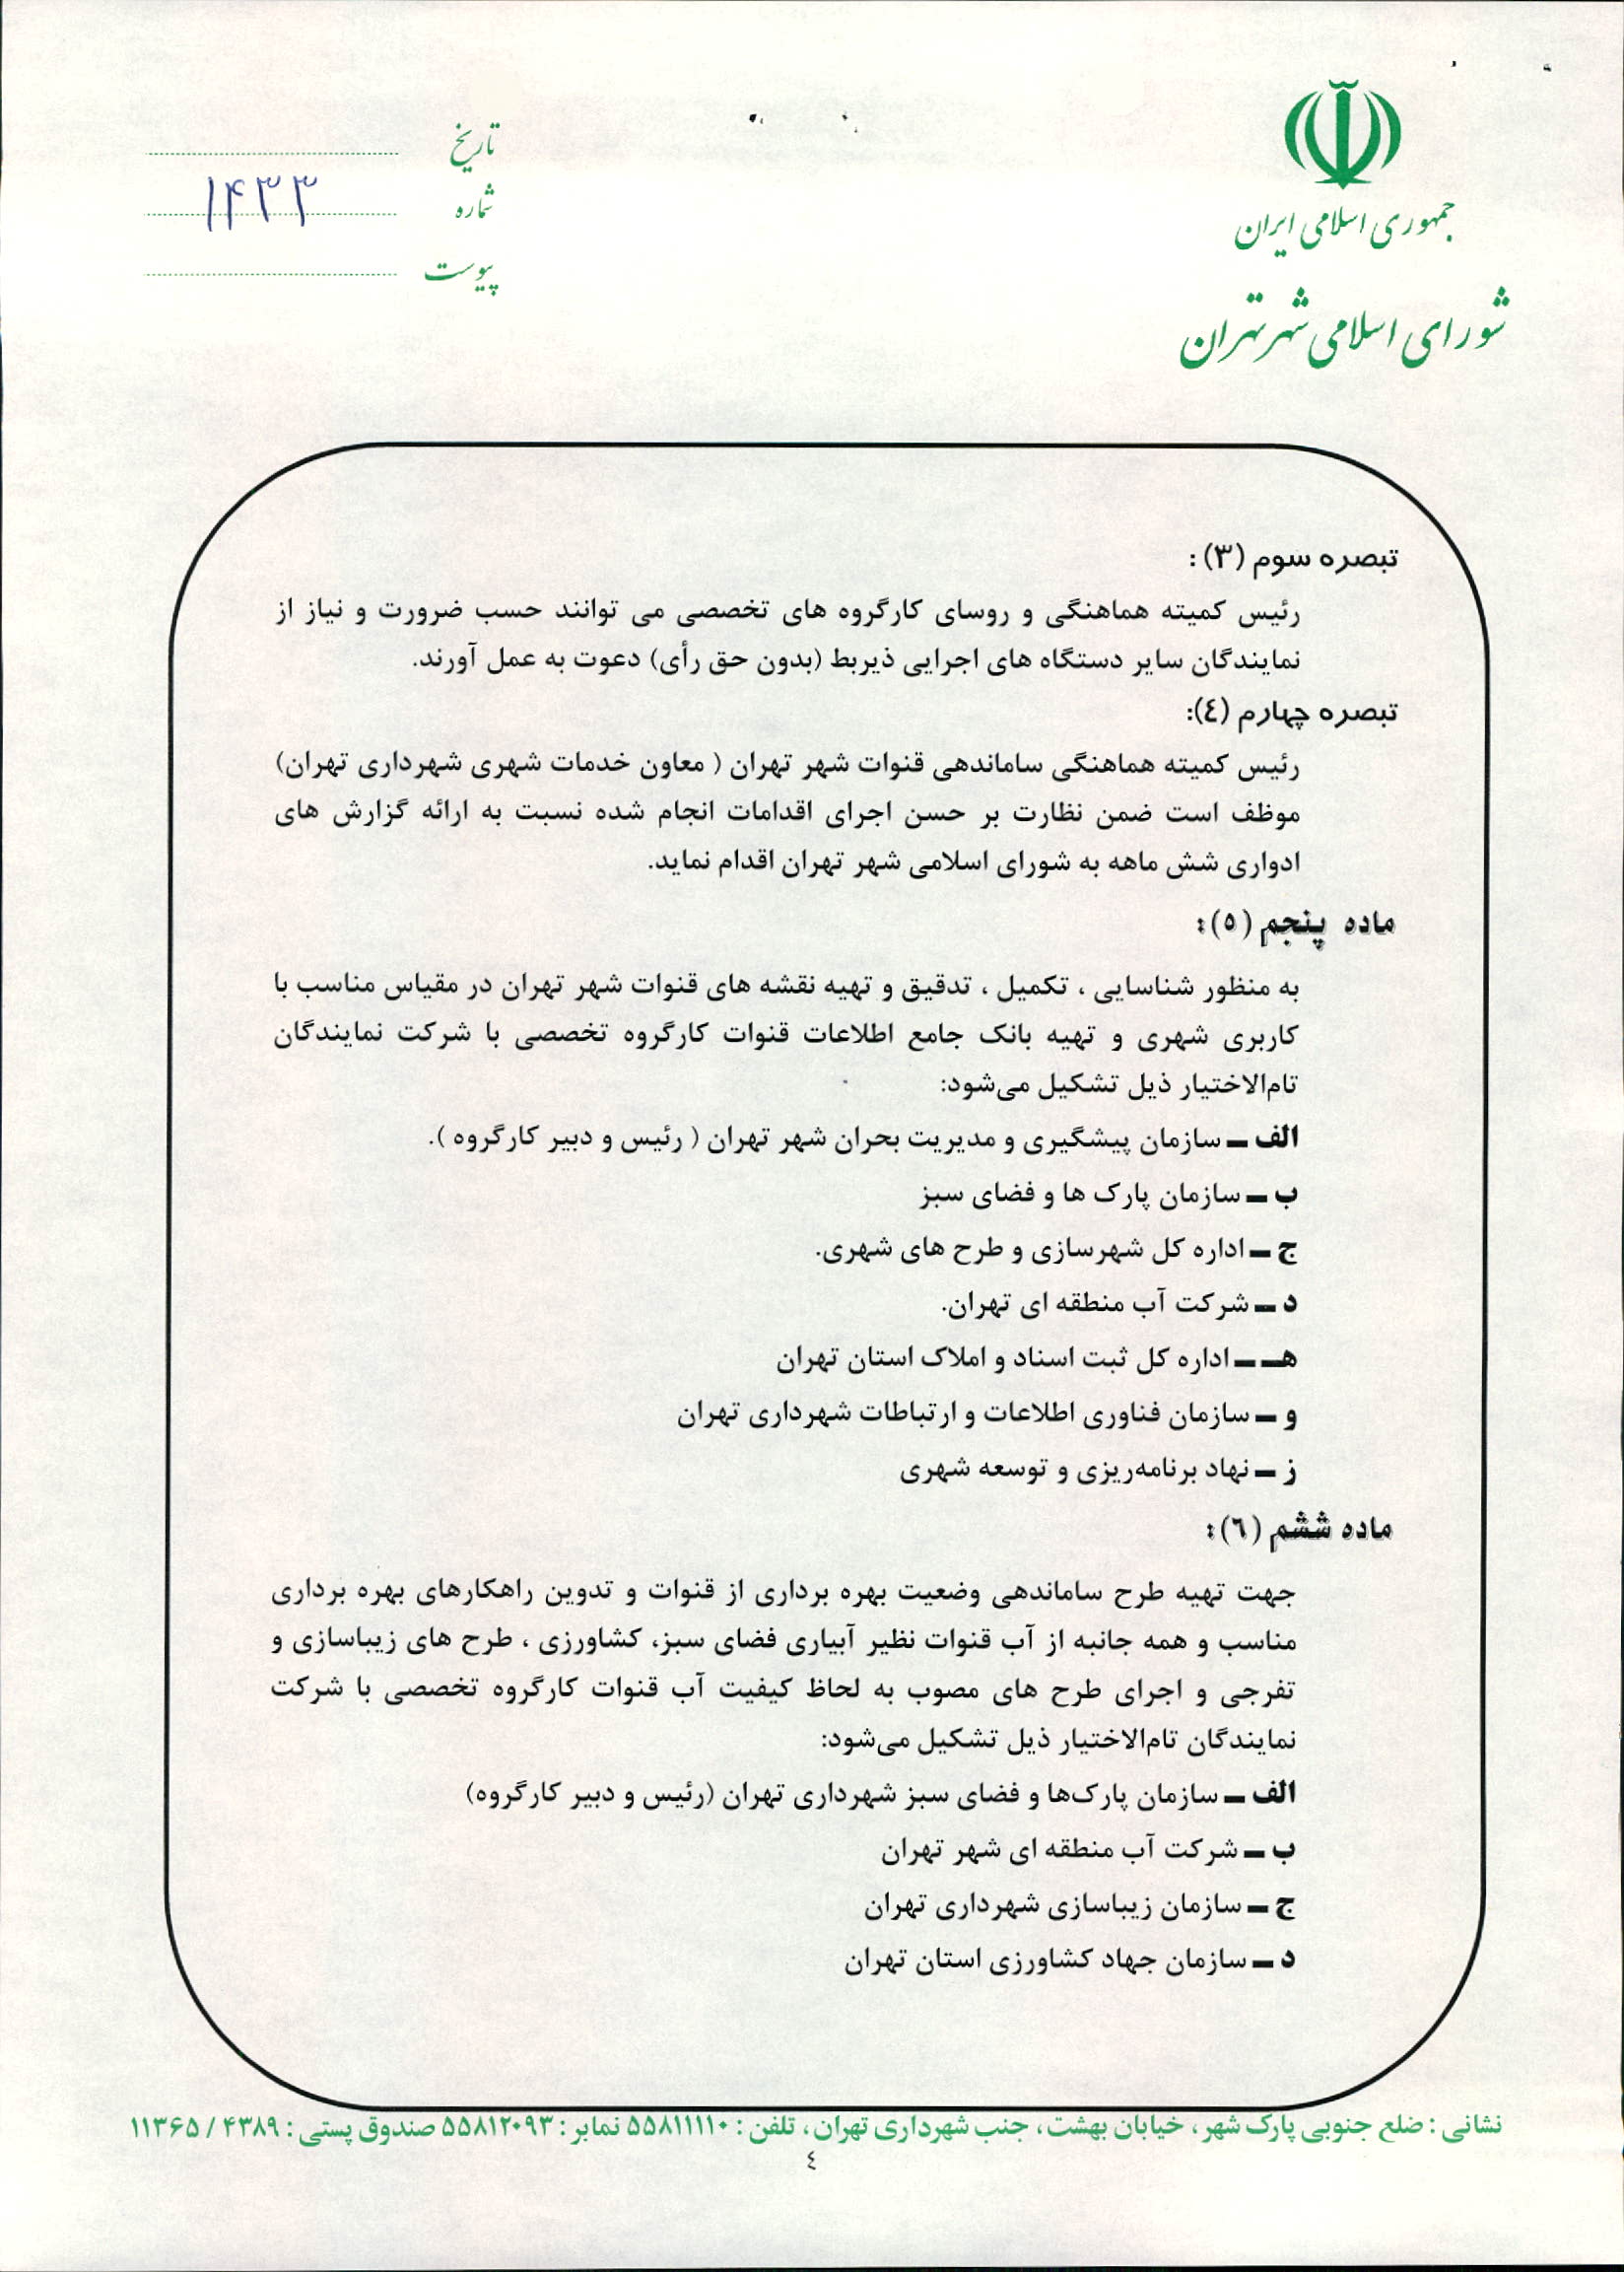 جمهوری اسلامی ایران
شورای اسلامی شهر تهران
تاریخ
شماره ۱۴۳۳
پیوست
تبصره سوم (۳):
رئیس کمیته هماهنگی و روسای کارگروه های تخصصی می توانند حسب ضرورت و نیاز از
نمایندگان سایر دستگاه های اجرایی ذیربط (بدون حق رأی) دعوت به عمل آورند.
تبصره چهارم (٤):
رئیس کمیته هماهنگی ساماندهی قنوات شهر تهران ( معاون خدمات شهری شهرداری تهران)
موظف است ضمن نظارت بر حسن اجرای اقدامات انجام شده نسبت به ارائه گزارش های
ادواری شش ماهه به شورای اسلامی شهر تهران اقدام نماید.
ماده پنجم (٥):
به منظور شناسایی ، تکمیل ، تدقیق و تهیه نقشه های قنوات شهر تهران در مقیاس مناسب با
کاربری شهری و تهیه بانک جامع اطلاعات قنوات کارگروه تخصصی با شرکت نمایندگان
تام‌الاختیار ذیل تشکیل می‌شود:
الف – سازمان پیشگیری و مدیریت بحران شهر تهران ( رئیس و دبیر کارگروه ).
ب – سازمان پارک ها و فضای سبز
ج – اداره کل شهرسازی و طرح های شهری.
د – شرکت آب منطقه ای تهران.
هـ – اداره کل ثبت اسناد و املاک استان تهران
و – سازمان فناوری اطلاعات و ارتباطات شهرداری تهران
ز – نهاد برنامه‌ریزی و توسعه شهری
ماده ششم (٦):
جهت تهیه طرح ساماندهی وضعیت بهره برداری از قنوات و تدوین راهکارهای بهره برداری
مناسب و همه جانبه از آب قنوات نظیر آبیاری فضای سبز، کشاورزی ، طرح های زیباسازی و
تفرجی و اجرای طرح های مصوب به لحاظ کیفیت آب قنوات کارگروه تخصصی با شرکت
نمایندگان تام‌الاختیار ذیل تشکیل می‌شود:
الف – سازمان پارک‌ها و فضای سبز شهرداری تهران (رئیس و دبیر کارگروه)
ب – شرکت آب منطقه ای شهر تهران
ج – سازمان زیباسازی شهرداری تهران
د – سازمان جهاد کشاورزی استان تهران
نشانی : ضلع جنوبی پارک شهر ، خیابان بهشت ، جنب شهرداری تهران ، تلفن : ۵۵۸۱۱۱۱۰ نمابر : ۵۵۸۱۲۰۹۳ صندوق پستی : ۴۳۸۹ / ۱۱۳۶۵
٤